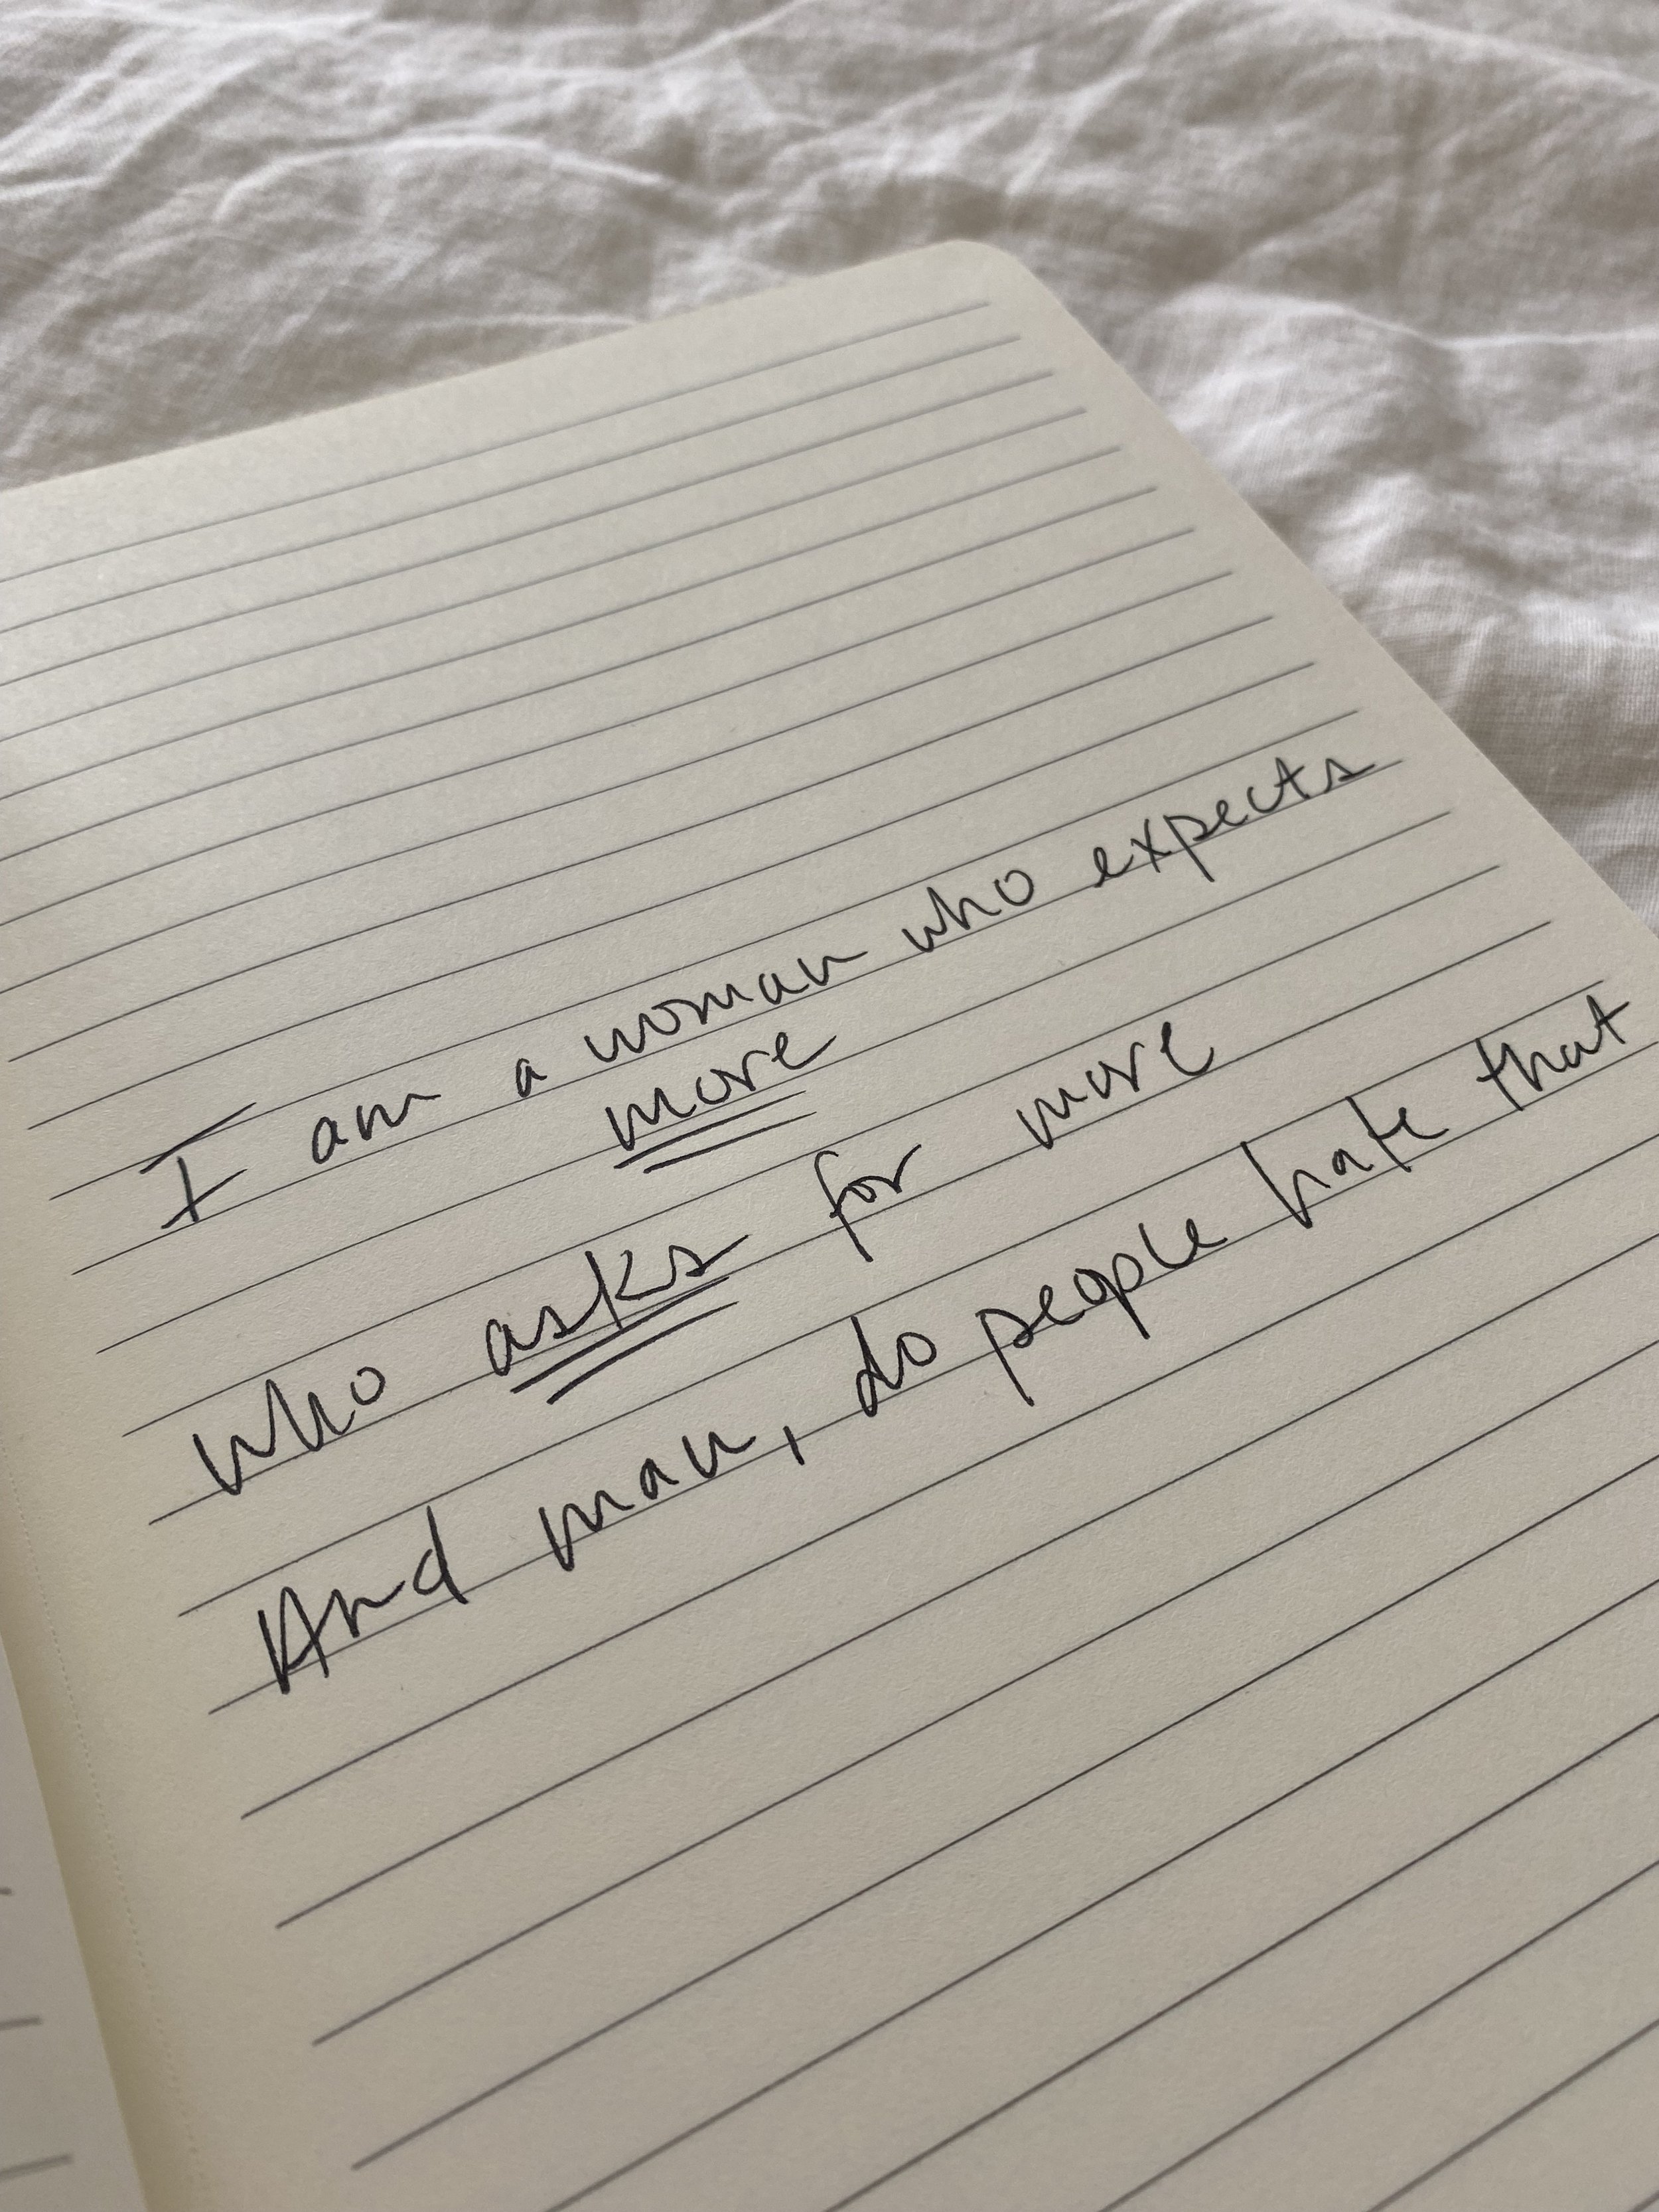 I am a woman who expects
more
who asks for more
And man, do people hate that